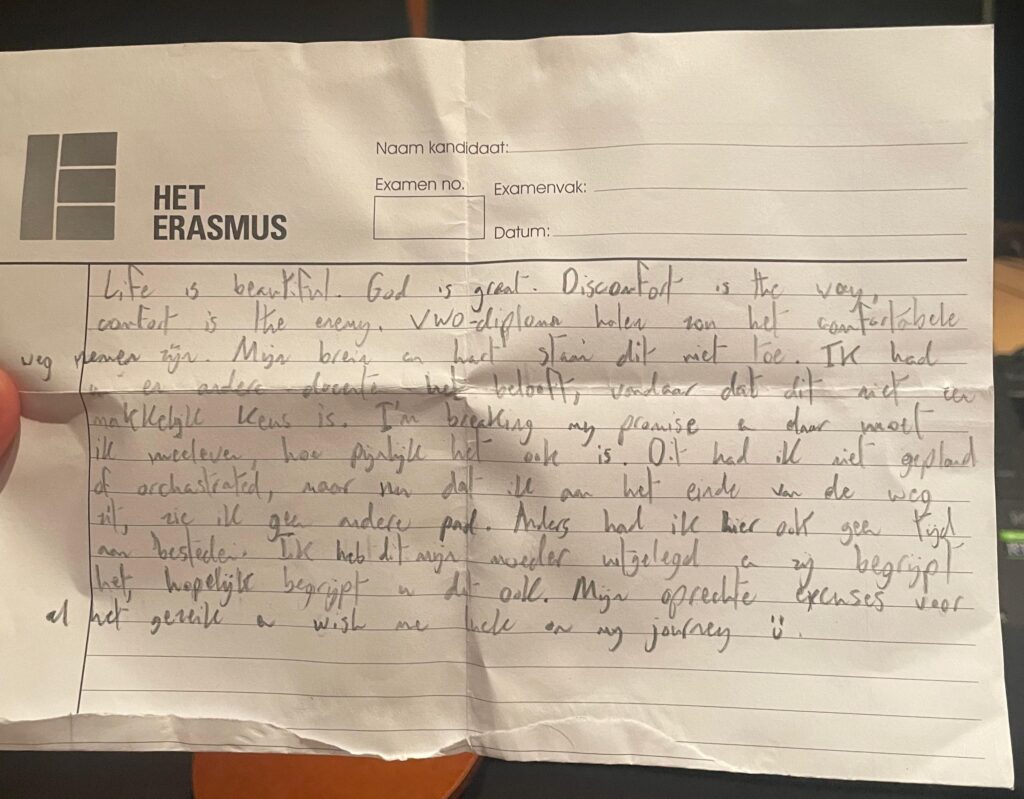 HET
ERASMUS
Naam kandidaat:
Examen no.
Examenvak:
Datum:
Life is beautiful. God is great. Discomfort is the way,
comfort is the enemy. VWO-diploma halen zou het comfortabele
weg nemen zijn. Mijn brein en hart staan dit niet toe. Ik had
u en andere docente het belooft, vandaar dat dit niet een
makkelijk keus is. I'm breaking my promise en daar moet
ik meeleven, hoe pijnlijk het ook is. Dit had ik niet gepland
of orchastrated, maar nu dat ik aan het einde van de weg
zit, zie ik geen andere pad. Anders had ik hier ook geen tijd
aan besteden. Ik heb dit mijn moeder uitgelegd en zij begrijpt
het, hopelijk begrijpt u dit ook. Mijn oprechte excuses voor
al het gezeik en wish me luck on my journey